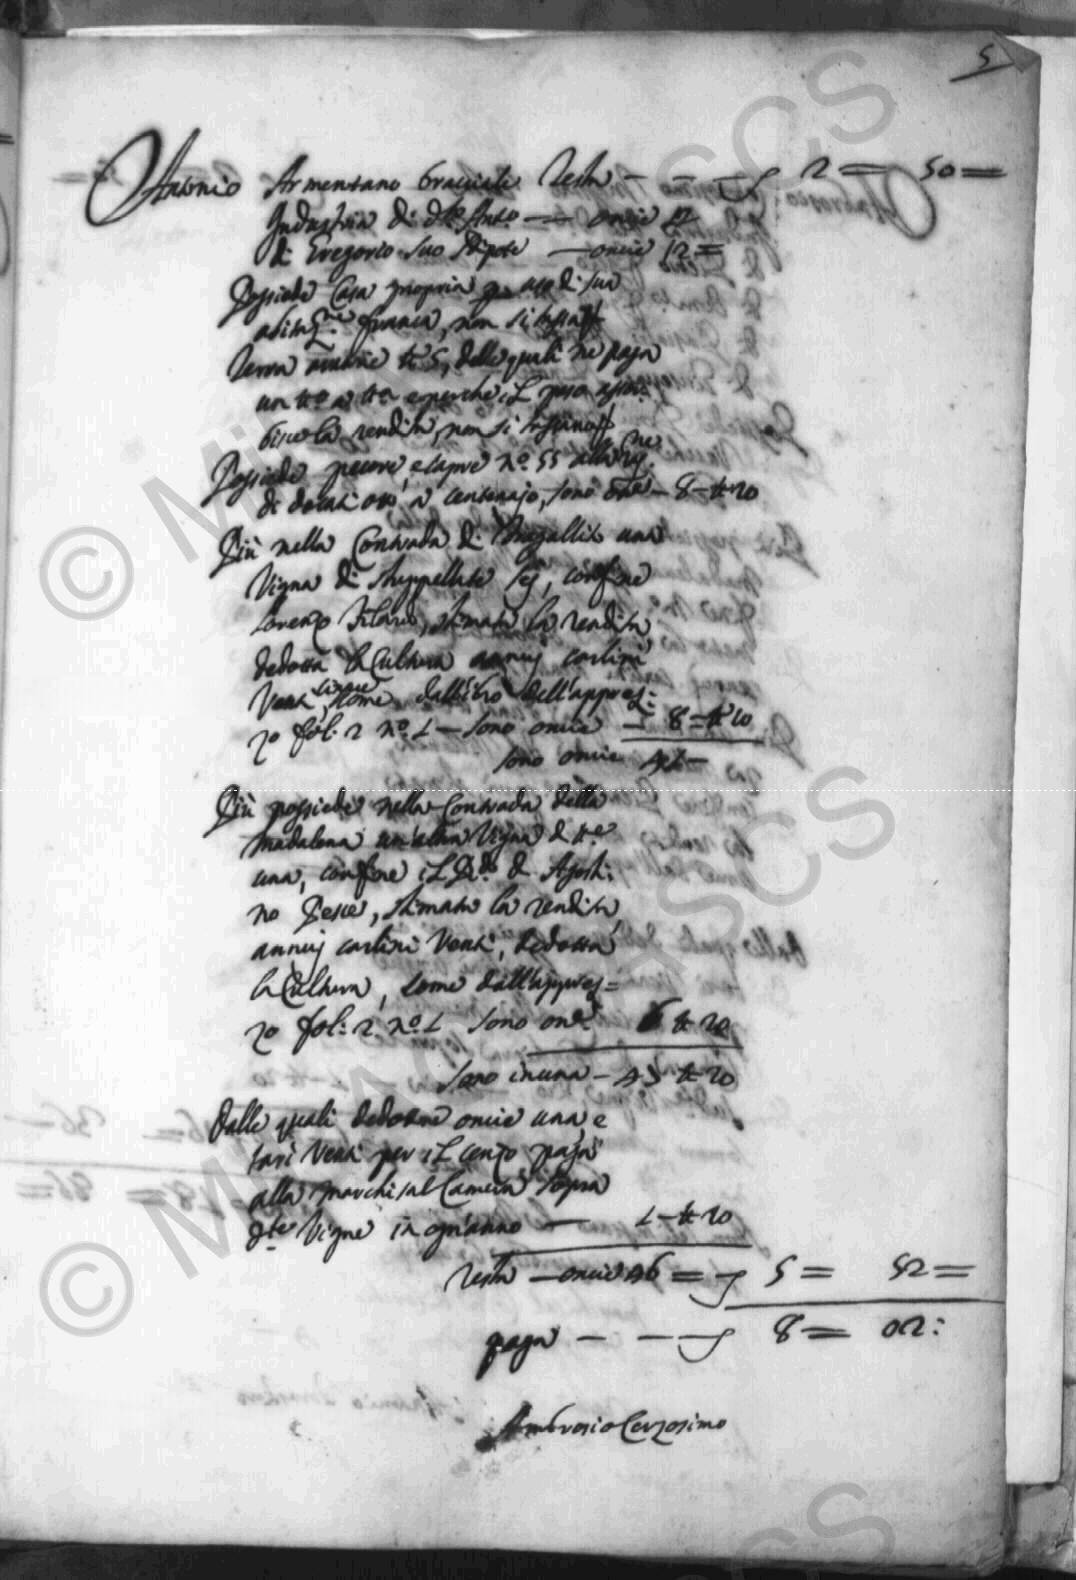 5
Antonio Armentano bracciale Testa — — — 2 = 50 =
Industria di dto Anto — oncie 12
di Gregorio suo Nipote — oncie 12 =
Possiede Casa propria per uso di sua
abitne franca, non si tassa
Terra tta 5, delle quali ne paga
un tto a tto e perche il peso assor:
bisce la rendita, non si tassano
Possiede pecore, e capre no. 55 alla
di docati otto il centenajo, sono onze — 8 — tt 20
Più nella Contrada di una
Vigna di stuppellate sei, confine
Lorenzo Filardi, stimata la rendita
dedotta la Cultura annui carlini
Venti cinque, come dall'libro dell'apprez:
zo fol: 2 no. 1 — sono oncie — 8 = tt 10
sono oncie 41 —
Più possiede nella Contrada della
Madalena un'altra Vigna di tta
una, confine il D. Agosti:
no Pesce, stimata la rendita
annui carlini Venti, dedotta
la Cultura, come dall'apprez =
zo fol: 2. no. 1 sono onze 6 tt 20
sono in una — 43 tt 20
Dalle quali dedotte oncie una, e
tarì Venti per il cenzo paga
alla Marchisal Camera sopra
dte Vigne in ogn'anno — 1 — tt 20
Resta — oncie 46 = — 5 = 52 =
paga — — — 8 = 02:
Ambrosio Cerzosimo
© MiC ASCS
© MiC ASCS